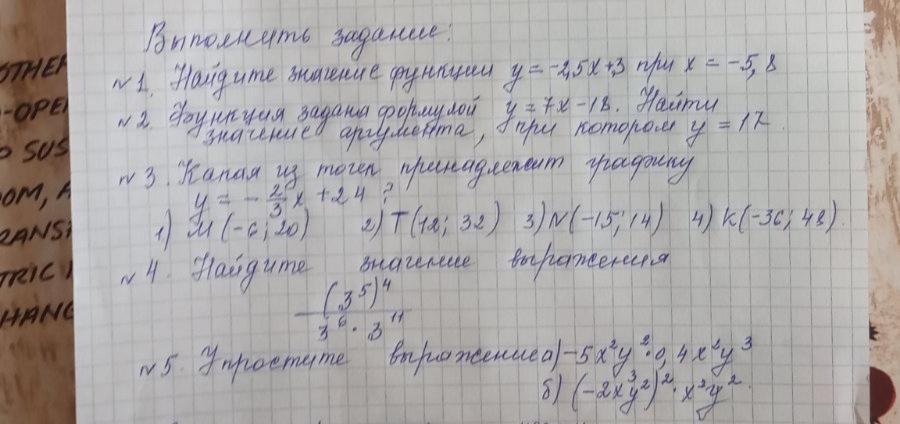 Выполнить задание:
№1. Найдите значение функции y = -2,5x+3 при x = -5,8
№2. Функция задана формулой y = 7x - 18. Найти
значение аргумента, при котором y = 17.
№3. Какая из точек принадлежит графику
y = - 2/3 x + 24 ?
1) M (-6; 20) 2) T (12; 32) 3) N (-15; 14) 4) K (-36; 48).
№4. Найдите значение выражения
(3⁵)⁴
3⁶ · 3¹¹
№5. Упростите выражение а) -5x²y² · 0,4x²y³
б) (-2x³y²)² · x²y².
OTHER
O-OPE
SUS
OOM, A
RANS
TRIC
HANG